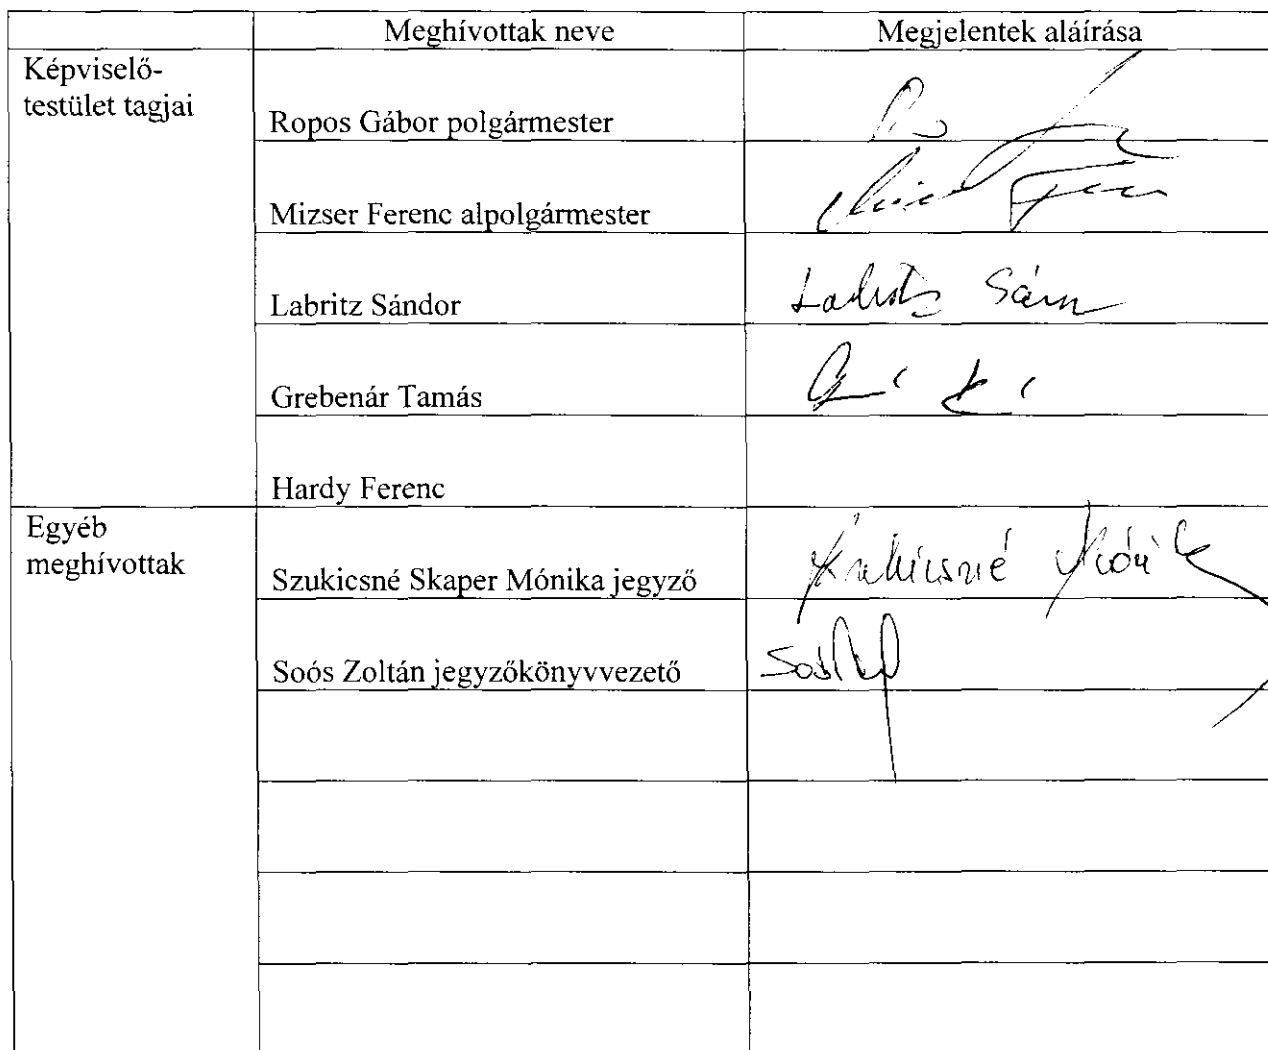 Meghívottak neve Megjelentek aláírása
Képviselő-
testület tagjai
Ropos Gábor polgármester
Mizser Ferenc alpolgármester
Labritz Sándor
Grebenár Tamás
Hardy Ferenc
Egyéb
meghívottak
Szukicsné Skaper Mónika jegyző
Soós Zoltán jegyzőkönyvvezető